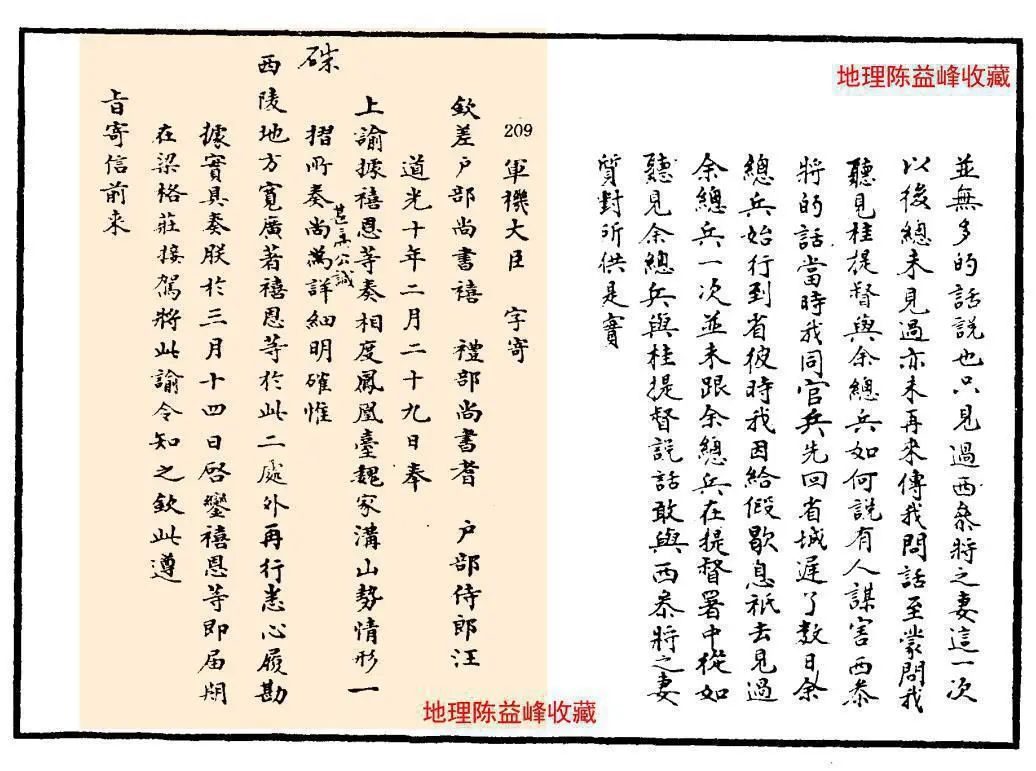 地理陈益峰收藏
並無多的話說也只見過西叅將之妻這一次
以後總未見過亦未再來傳我問話至蒙問我
聽見桂提督與余總兵如何說有人謀害西叅
將的話當時我同官兵先回省城遲了数日余
總兵始行到省彼時我因給假歇息祇去見過
余總兵一次並未跟余總兵在提督署中從如
聽見余總兵與桂提督説話敢與西叅將之妻
質對所供是實
209 軍機大臣 字寄
欽差戶部尚書禧 禮部尚書耆 戶部侍郎汪
道光十年二月二十九日奉
上諭據禧恩等奏相度鳳凰臺魏家溝山勢情形一
摺所奏尚為詳細明確惟
甚屬公誠
硃
西陵地方寬廣著禧恩等於此二處外再行悉心履勘
據實具奏朕於三月十四日啓鑾禧恩等即届期
在梁格莊接駕將此諭令知之欽此遵
旨寄信前来
地理陈益峰收藏